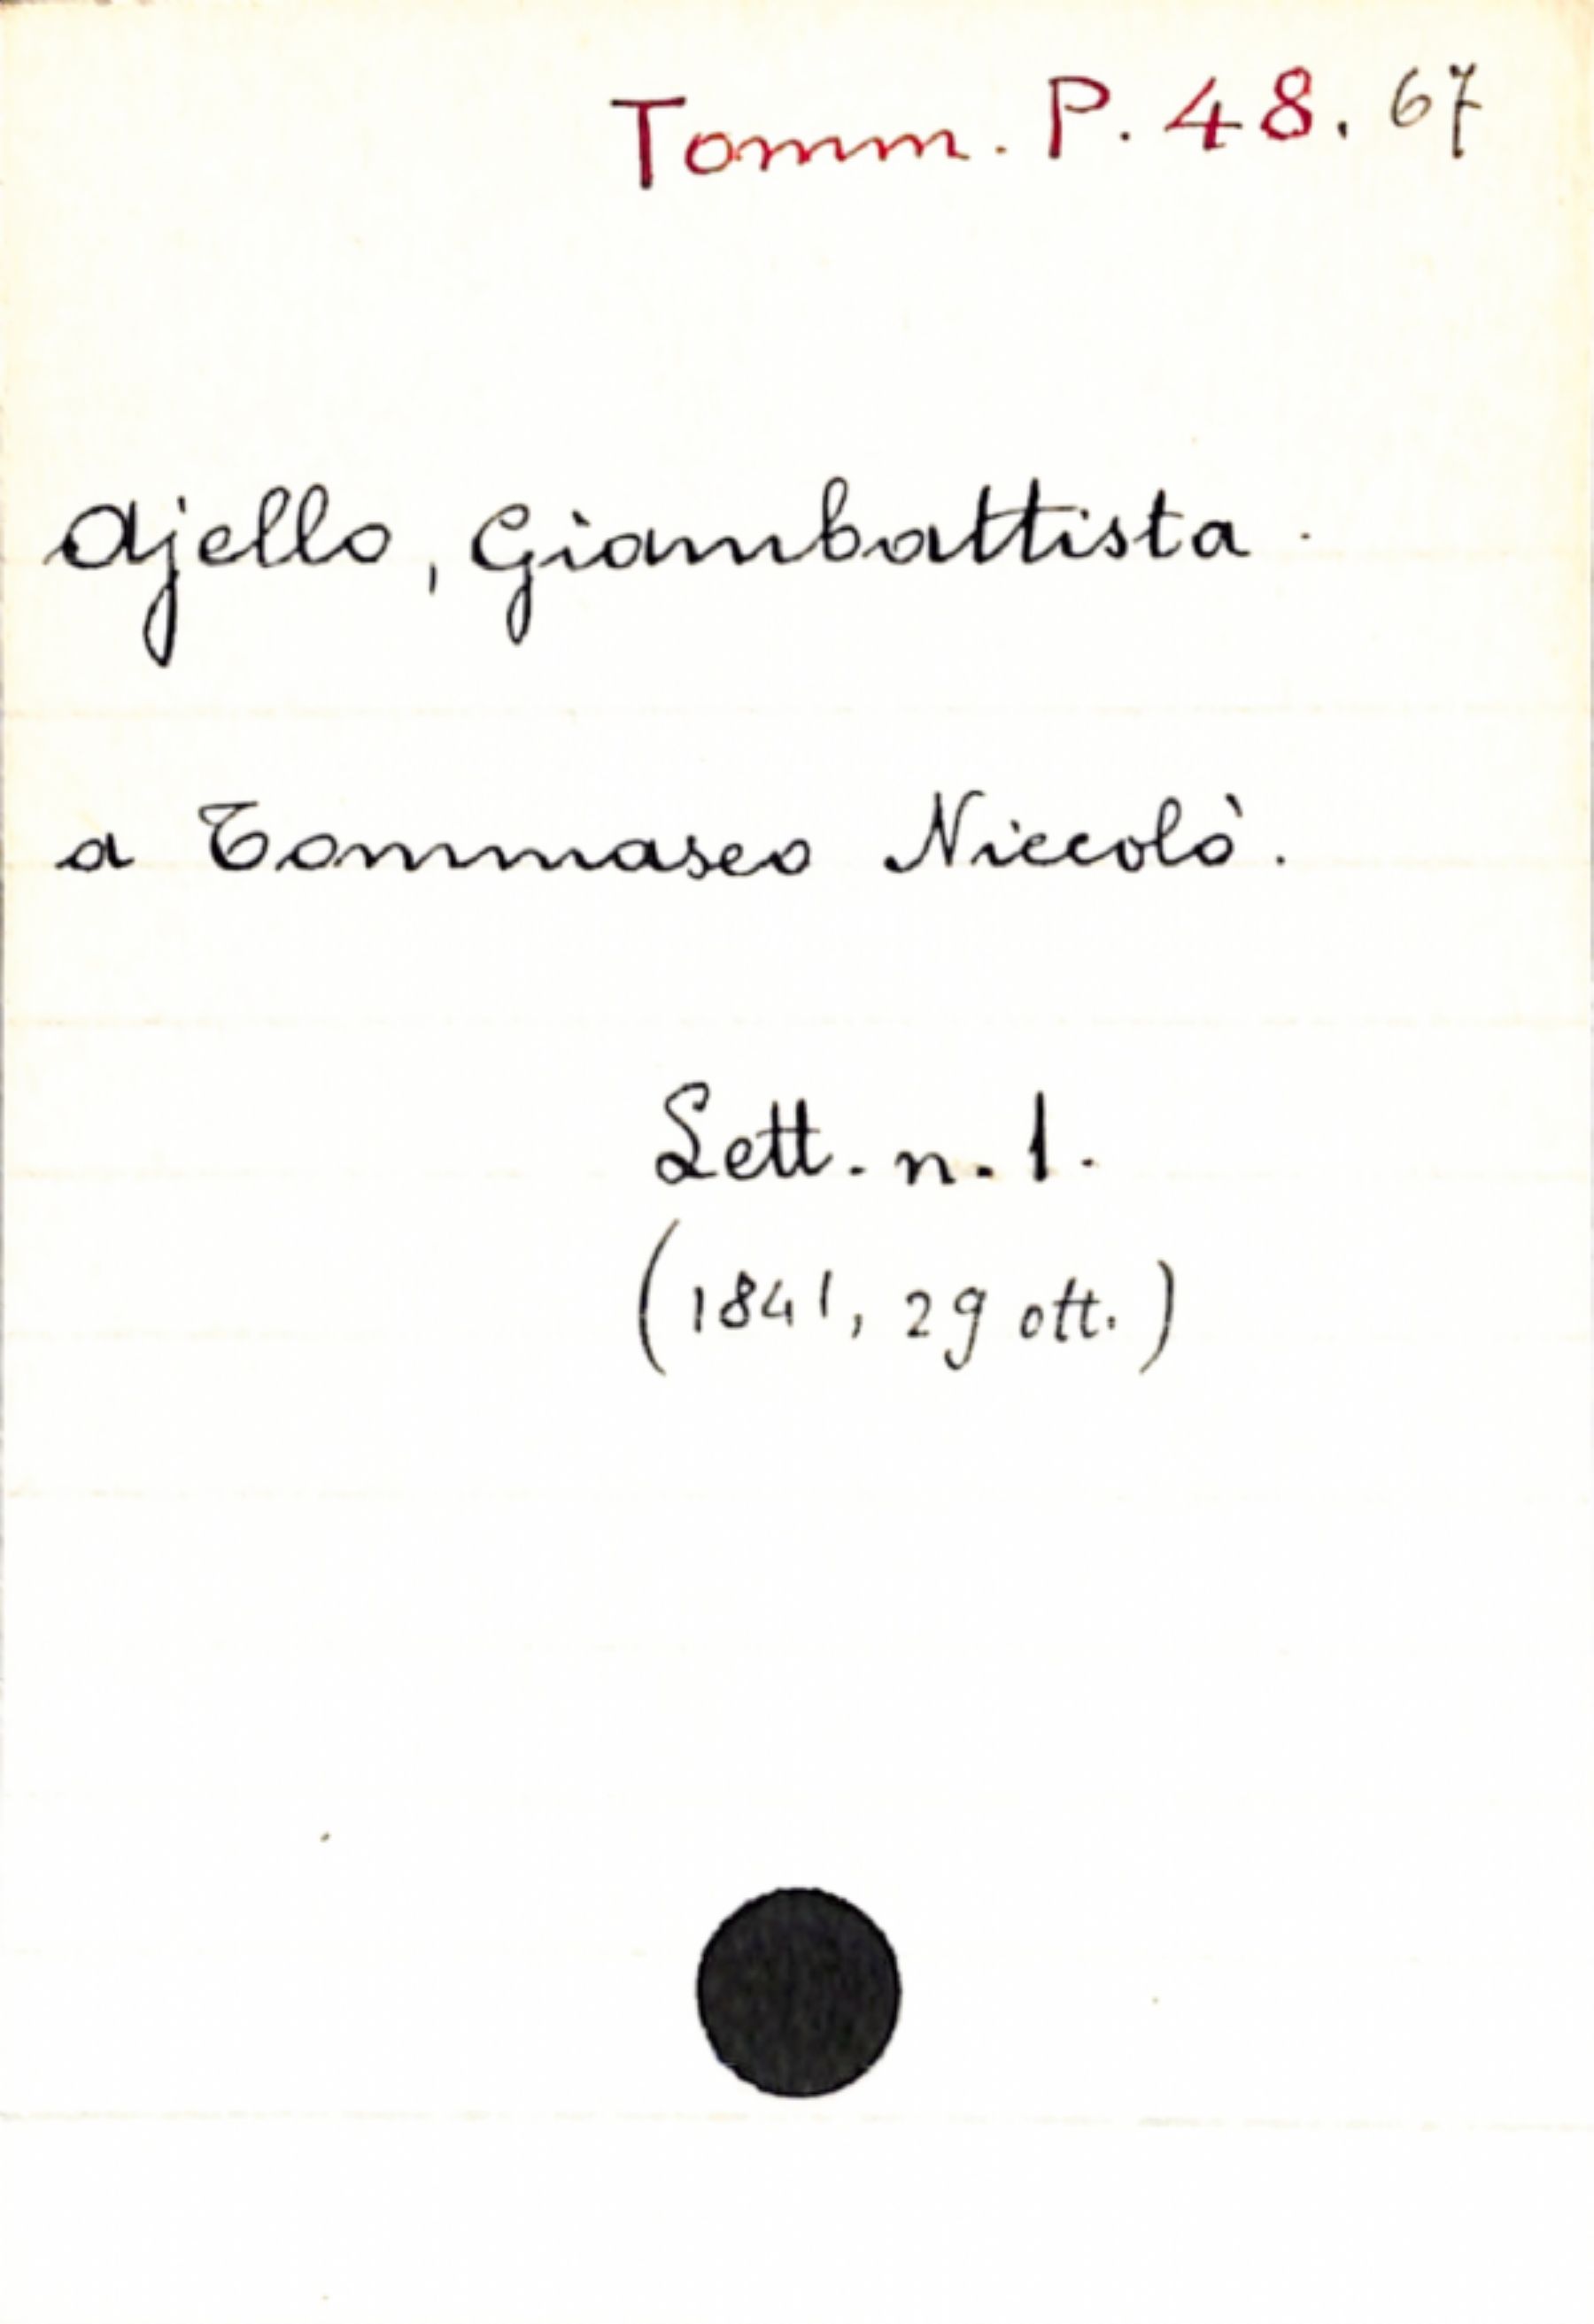 Tomm. P. 48. 67
Ajello, Giambattista.
a Tommaseo Niccolò.
Lett. n. 1.
(1841, 29 ott.)